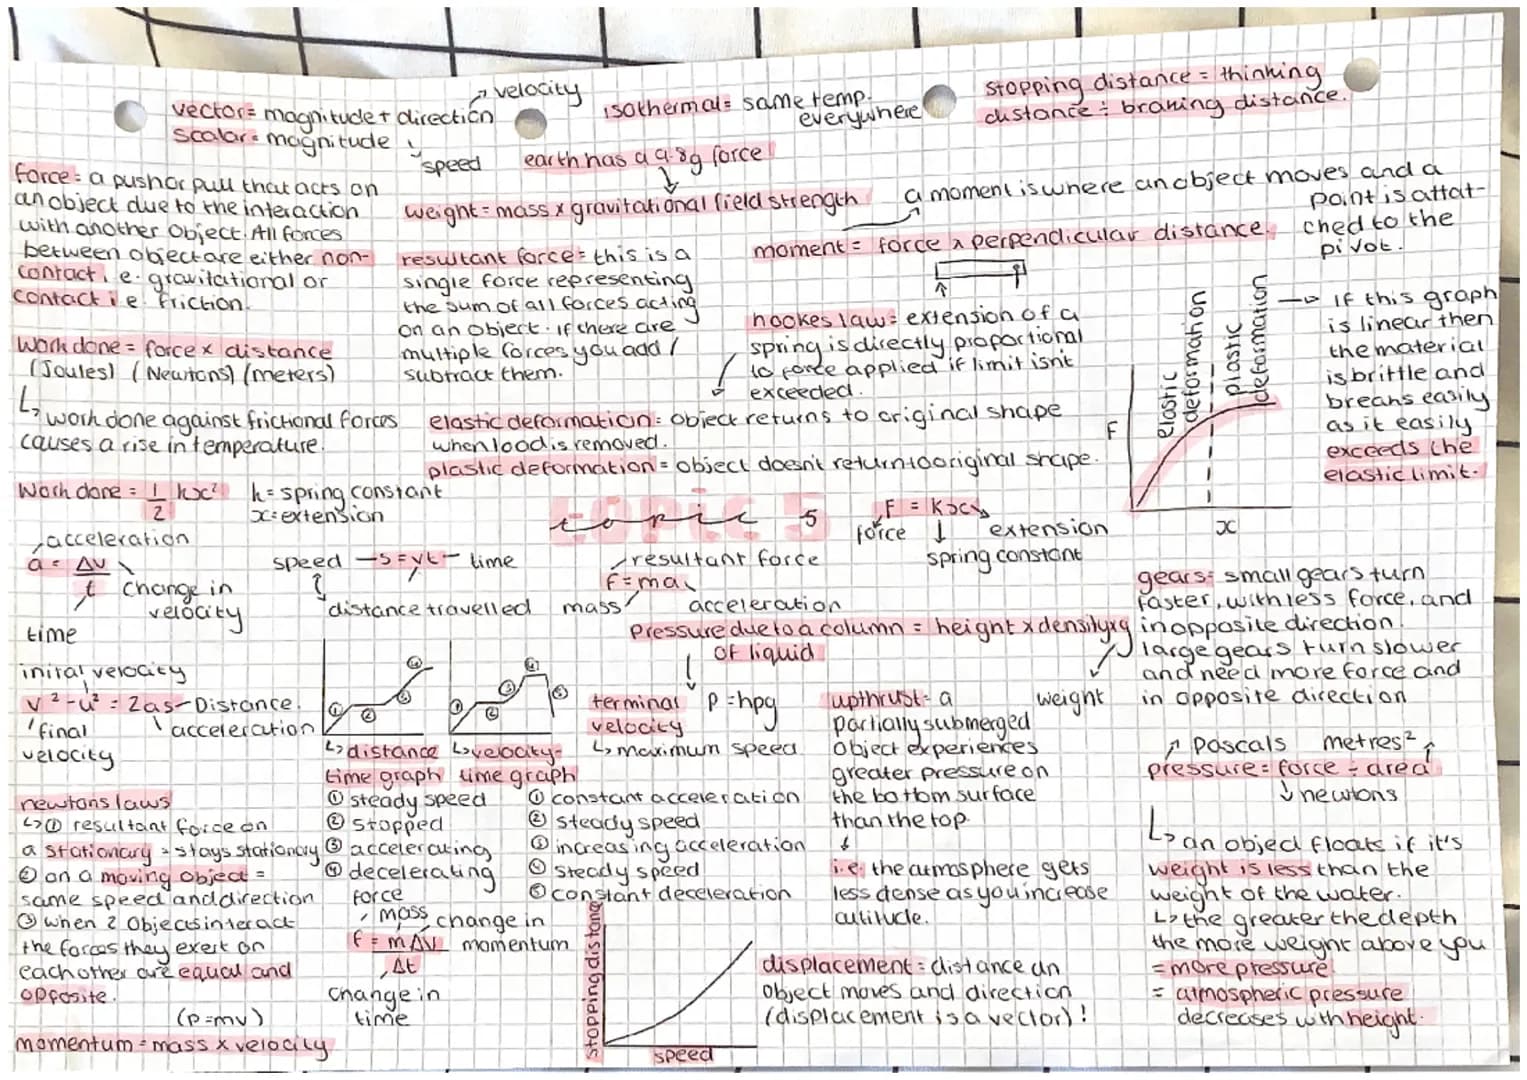 vector = magnitude + direction → velocity
scalar = magnitude → speed
isothermal = same temp. everywhere
stopping distance = thinking
distance + braking distance.
earth has a 9.8g force
weight = mass x gravitational field strength
force = a push or pull that acts on
an object due to the interaction
with another object. All forces
between object are either non-
contact i.e. gravitational or
contact i.e. friction.
resultant force = this is a
single force representing
the sum of all forces acting
on an object. if there are
multiple forces you add /
subtract them.
a moment is where an object moves and a
point is attat-
ched to the
pivot.
moment = force x perpendicular distance.
hookes law = extension of a
spring is directly proportional
to force applied if limit isn't
exceeded.
elastic deformation
plastic deformation
F
x
→ If this graph
is linear then
the material
is brittle and
breaks easily
as it easily
exceeds the
elastic limit.
work done = force x distance
(Joules) (Newtons) (meters)
↳ work done against frictional forces
causes a rise in temperature.
elastic deformation = object returns to original shape
when load is removed.
plastic deformation = object doesn't return to original shape.
Work done = 1/2 kx² k = spring constant
x = extension
topic 5
F = kx
force
spring constant
extension
acceleration
a = Δv / t
change in
velocity
time
speed → s = vt → time
distance travelled
resultant force
f = ma
mass
acceleration
gears = small gears turn
faster, with less force, and
in opposite direction.
large gears turn slower
and need more force and
in opposite direction
pressure due to a column = height x density x g
of liquid
p = hpg
weight
inital velocity
v² - u² = 2as - Distance.
final
velocity
acceleration
① ② ③ ④
① ② ③ ④ ⑤
↳ distance
time graph
① steady speed
② stopped
③ accelerating
④ decelerating
↳ velocity-
time graph
① constant acceleration
② steady speed
③ increasing acceleration
④ steady speed
⑤ constant deceleration
terminal
velocity
↳ maximum speed
upthrust = a
partially submerged
object experiences
greater pressure on
the bottom surface
than the top.
↓
i.e. the atmosphere gets
less dense as you increase
altitude.
pascals metres²
pressure = force ÷ area
↓ newtons
↳ an object floats if it's
weight is less than the
weight of the water.
↳ the greater the depth
the more weight above you
= more pressure
= atmospheric pressure
decreases with height.
newtons laws
↳ ① resultant force on
a stationary = stays stationary
② on a moving object =
same speed and direction
③ when 2 objects interact
the forces they exert on
each other are equal and
opposite.
(p = mv)
momentum = mass x velocity
force
mass
change in
momentum
f = mΔv / Δt
change in
time
stopping distance
speed
displacement = distance an
object moves and direction
(displacement is a vector)!